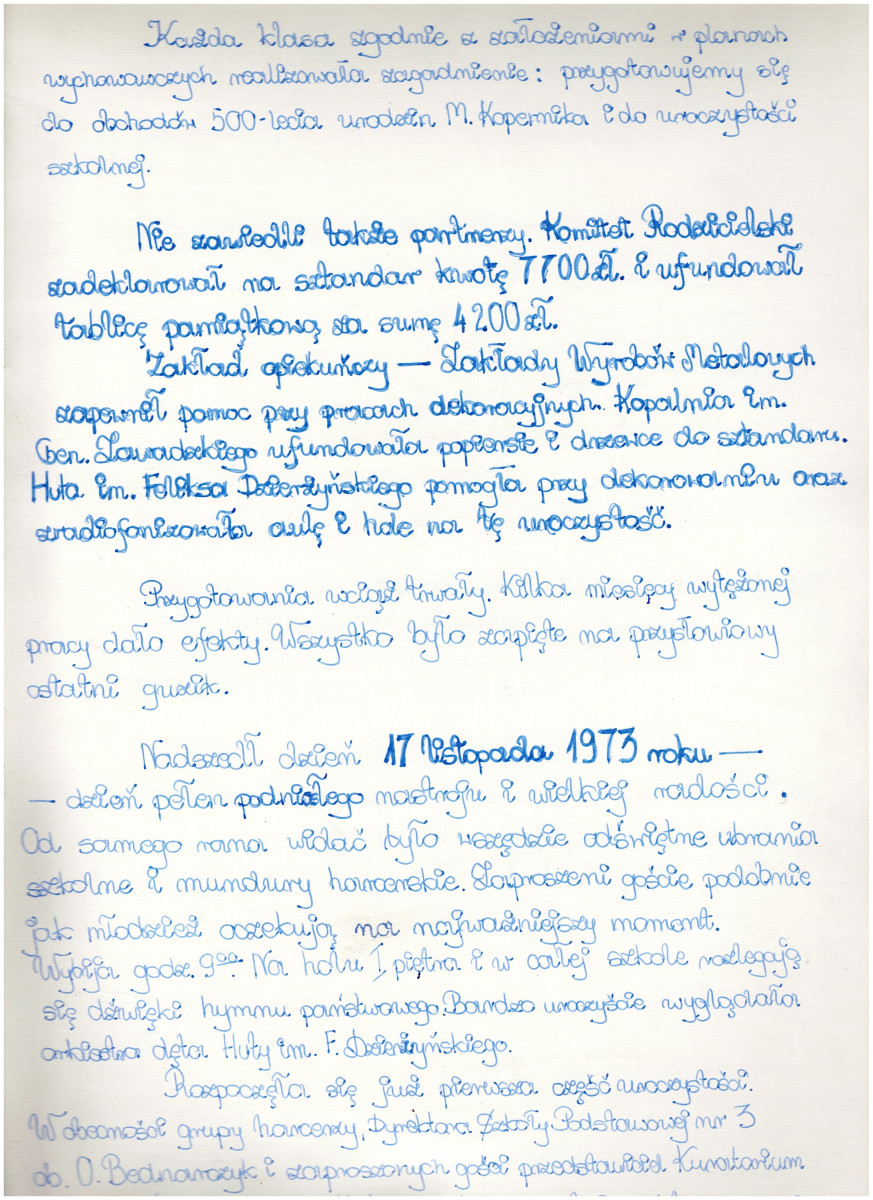 Każda klasa zgodnie z założeniami w planach
wychowawczych realizowała zagadnienie: przygotowujemy się
do obchodów 500-lecia urodzin M. Kopernika i do uroczystości
szkolnej.
Nie zawiedli także partnerzy. Komitet Rodzicielski
zadeklarował na sztandar kwotę 7700 zł. i ufundował
tablicę pamiątkową za sumę 4200 zł.
Zakład opiekuńczy — Zakłady Wyrobów Metalowych
zapewnił pomoc przy pracach dekoracyjnych. Kopalnia im.
Gen. Zawadzkiego ufundowała popiersie i drzewce do sztandaru.
Huta im. Feliksa Dzierżyńskiego pomogła przy dekorowaniu oraz
zradiofonizowała aulę i hole na tę uroczystość.
Przygotowania wciąż trwały. Kilka miesięcy wytężonej
pracy dało efekty. Wszystko było zapięte na przysłowiowy
ostatni guzik.
Nadszedł dzień 17 listopada 1973 roku —
— dzień pełen podniosłego nastroju i wielkiej radości.
Od samego rana widać było wszędzie odświętne ubrania
szkolne i mundury harcerskie. Zaproszeni goście podobnie
jak młodzież oczekują na najważniejszy moment.
Wybija godz. 9⁰⁰. Na holu I piętra i w całej szkole rozlegają
się dźwięki hymnu państwowego. Bardzo uroczyście wyglądała
orkiestra dęta Huty im. F. Dzierżyńskiego.
Rozpoczęła się już pierwsza część uroczystości.
W obecności grupy harcerzy, Dyrektora Szkoły Podstawowej nr 3
ob. O. Bednarczyk i zaproszonych gości przedstawiciel Kuratorium